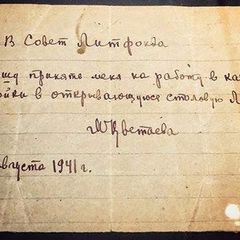 В Совет Литфонда
шу принять меня на работу в ка
ойки в открывающуюся столовую Л
МЦветаева
августа 1941 г.